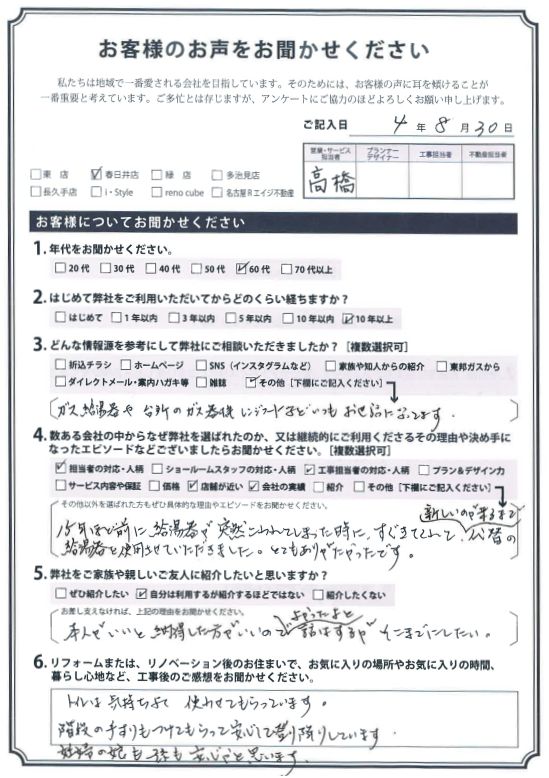 お客様のお声をお聞かせください
私たちは地域で一番愛される会社を目指しています。そのためには、お客様の声に耳を傾けることが
一番重要と考えています。ご多忙とは存じますが、アンケートにご協力のほどよろしくお願い申し上げます。
ご記入日 4 年 8 月 30 日
営業・サービス担当者 プランナーデザイナー 工事担当者 不動産担当者
高橋
□東 店 ☑春日井店 □緑 店 □多治見店
□長久手店 □i・Style □reno cube □名古屋Rエイジ不動産
お客様についてお聞かせください
1. 年代をお聞かせください。
□20代 □30代 □40代 □50代 ☑60代 □70代以上
2. はじめて弊社をご利用いただいてからどのくらい経ちますか？
□はじめて □1年以内 □3年以内 □5年以内 □10年以内 ☑10年以上
3. どんな情報源を参考にして弊社にご相談いただきましたか？［複数選択可］
□折込チラシ □ホームページ □SNS（インスタグラムなど） □家族や知人からの紹介 □東邦ガスから
□ダイレクトメール・案内ハガキ等 □雑誌 ☑その他［下欄にご記入ください］
ガス給湯器や台所のガス器機 レンジフードなどいつもお世話になってます．
4. 数ある会社の中からなぜ弊社を選ばれたのか、又は継続的にご利用くださるその理由や決め手に
なったエピソードなどございましたらお聞かせください。［複数選択可］
☑担当者の対応・人柄 □ショールームスタッフの対応・人柄 ☑工事担当者の対応・人柄 □プラン＆デザイン力
□サービス内容や保証 □価格 ☑店舗が近い ☑会社の実績 □紹介 □その他［下欄にご記入ください］
その他以外を選ばれた方もぜひ具体的な理由やエピソードをお聞かせください。
新しいのが来るまで
15年ほど前に給湯器が突然こわれてしまった時に、すぐきてくれて、代替の
給湯器を使用させていただきました。とてもありがたかったです。
5. 弊社をご家族や親しいご友人に紹介したいと思いますか？
□ぜひ紹介したい ☑自分は利用するが紹介するほどではない □紹介したくない
お差し支えなければ、上記の理由をお聞かせください。
よかったよと
本人がいいと納得した方がいいので話はするが そこまでにしたい。
6. リフォームまたは、リノベーション後のお住まいで、お気に入りの場所やお気に入りの時間、
暮らし心地など、工事後のご感想をお聞かせください。
トイレは気持ちよく使わせてもらっています。
階段の手すりもつけてもらって安心して登り降りしています．
妊婦の娘も孫も安心かと思います．